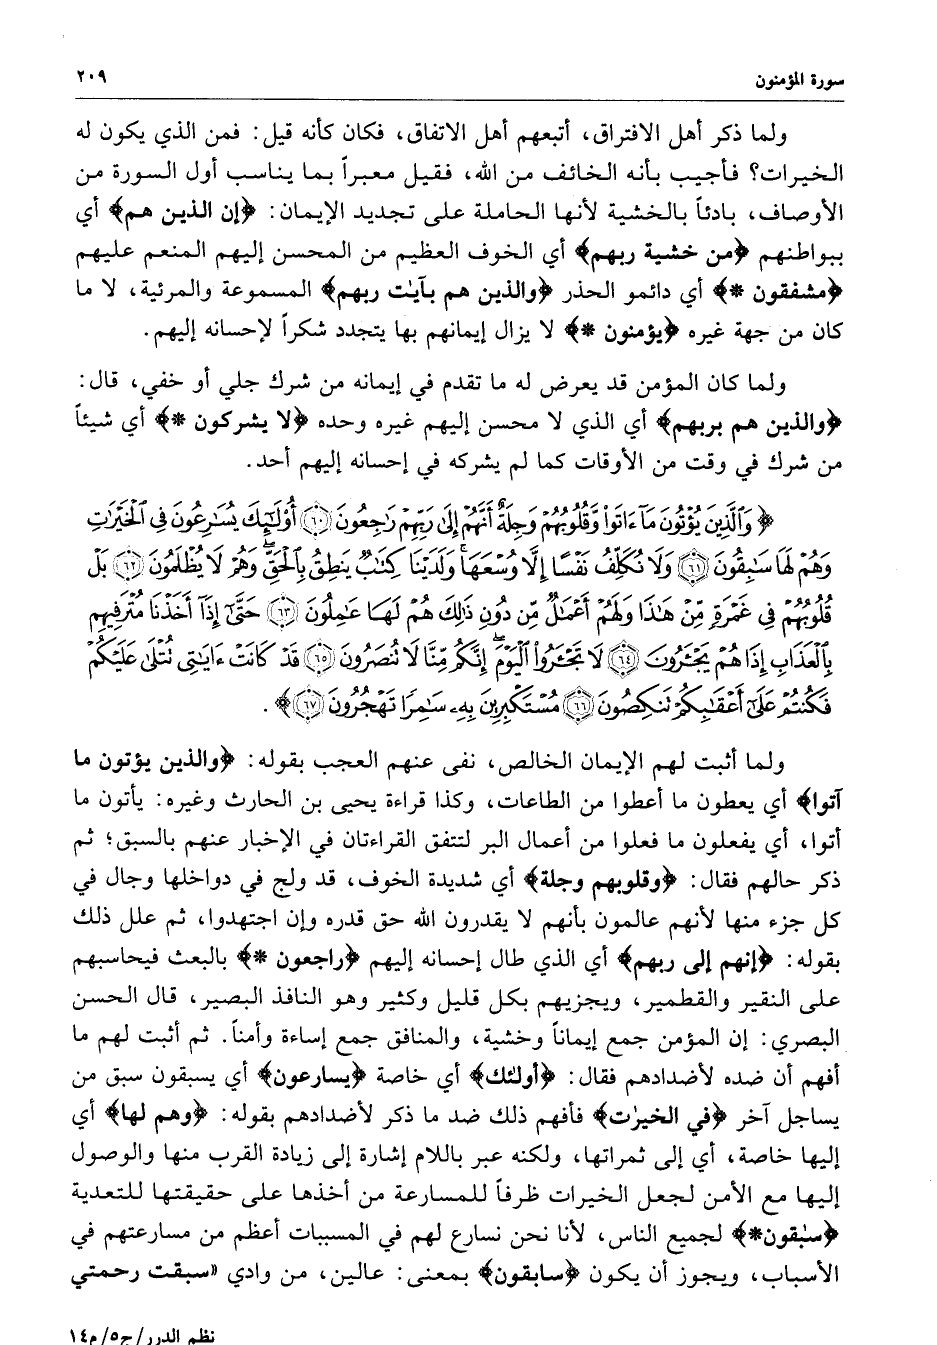 سورة المؤمنون ٢٠٩
ولما ذكر أهل الافتراق، أتبعهم أهل الاتفاق، فكان كأنه قيل: فمن الذي يكون له
الخيرات؟ فأجيب بأنه الخائف من الله، فقيل معبراً بما يناسب أول السورة من
الأوصاف، بادئاً بالخشية لأنها الحاملة على تجديد الإيمان: ﴿إن الذين هم﴾ أي
ببواطنهم ﴿من خشية ربهم﴾ أي الخوف العظيم من المحسن إليهم المنعم عليهم
﴿مشفقون *﴾ أي دائمو الحذر ﴿والذين هم بآيٰت ربهم﴾ المسموعة والمرئية، لا ما
كان من جهة غيره ﴿يؤمنون *﴾ لا يزال إيمانهم بها يتجدد شكراً لإحسانه إليهم.
ولما كان المؤمن قد يعرض له ما تقدم في إيمانه من شرك جلي أو خفي، قال:
﴿والذين هم بربهم﴾ أي الذي لا محسن إليهم غيره وحده ﴿لا يشركون *﴾ أي شيئاً
من شرك في وقت من الأوقات كما لم يشركه في إحسانه إليهم أحد.
﴿وَٱلَّذِينَ يُؤْتُونَ مَآ ءَاتَوا۟ وَّقُلُوبُهُمْ وَجِلَةٌ أَنَّهُمْ إِلَىٰ رَبِّهِمْ رَٰجِعُونَ ۝٦٠ أُو۟لَٰٓئِكَ يُسَٰرِعُونَ فِى ٱلْخَيْرَٰتِ
وَهُمْ لَهَا سَٰبِقُونَ ۝٦١ وَلَا نُكَلِّفُ نَفْسًا إِلَّا وُسْعَهَا ۖ وَلَدَيْنَا كِتَٰبٌ يَنطِقُ بِٱلْحَقِّ ۚ وَهُمْ لَا يُظْلَمُونَ ۝٦٢ بَلْ
قُلُوبُهُمْ فِى غَمْرَةٍ مِّنْ هَٰذَا وَلَهُمْ أَعْمَٰلٌ مِّن دُونِ ذَٰلِكَ هُمْ لَهَا عَٰمِلُونَ ۝٦٣ حَتَّىٰٓ إِذَآ أَخَذْنَا مُتْرَفِيهِم
بِٱلْعَذَابِ إِذَا هُمْ يَجْـَٔرُونَ ۝٦٤ لَا تَجْـَٔرُوا۟ ٱلْيَوْمَ ۖ إِنَّكُم مِّنَّا لَا تُنصَرُونَ ۝٦٥ قَدْ كَانَتْ ءَايَٰتِى تُتْلَىٰ عَلَيْكُمْ
فَكُنتُمْ عَلَىٰٓ أَعْقَٰبِكُمْ تَنكِصُونَ ۝٦٦ مُسْتَكْبِرِينَ بِهِۦ سَٰمِرًا تَهْجُرُونَ ۝٦٧﴾.
ولما أثبت لهم الإيمان الخالص، نفى عنهم العجب بقوله: ﴿والذين يؤتون ما
آتوا﴾ أي يعطون ما أعطوا من الطاعات، وكذا قراءة يحيى بن الحارث وغيره: يأتون ما
أتوا، أي يفعلون ما فعلوا من أعمال البر لتتفق القراءتان في الإخبار عنهم بالسبق؛ ثم
ذكر حالهم فقال: ﴿وقلوبهم وجلة﴾ أي شديدة الخوف، قد ولج في دواخلها وجال في
كل جزء منها لأنهم عالمون بأنهم لا يقدرون الله حق قدره وإن اجتهدوا، ثم علل ذلك
بقوله: ﴿إنهم إلى ربهم﴾ أي الذي طال إحسانه إليهم ﴿راجعون *﴾ بالبعث فيحاسبهم
على النقير والقطمير، ويجزيهم بكل قليل وكثير وهو النافذ البصير، قال الحسن
البصري: إن المؤمن جمع إيماناً وخشية، والمنافق جمع إساءة وأمناً. ثم أثبت لهم ما
أفهم أن ضده لأضدادهم فقال: ﴿أولئك﴾ أي خاصة ﴿يسارعون﴾ أي يسبقون سبق من
يساجل آخر ﴿في الخيرٰت﴾ فأفهم ذلك ضد ما ذكر لأضدادهم بقوله: ﴿وهم لها﴾ أي
إليها خاصة، أي إلى ثمراتها، ولكنه عبر باللام إشارة إلى زيادة القرب منها والوصول
إليها مع الأمن لجعل الخيرات ظرفاً للمسارعة من أخذها على حقيقتها للتعدية
﴿سٰبقون*﴾ لجميع الناس، لأنا نحن نسارع لهم في المسببات أعظم من مسارعتهم في
الأسباب، ويجوز أن يكون ﴿سابقون﴾ بمعنى: عالين، من وادي «سبقت رحمتي
نظم الدرر/ ج٥/ م١٤